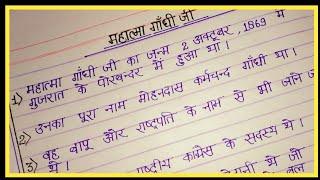 महात्मा गाँधी जी
1) महात्मा गाँधी जी का जन्म 2 अक्टूबर, 1869 में
गुजरात के पोरबन्दर में हुआ था।
2) उनका पूरा नाम मोहनदास कर्मचन्द गाँधी था।
3) वह बापू और राष्ट्रपति के नाम से भी जाने जाते
थे।
राष्ट्रीय कांग्रेस के सदस्य थे।
थे जो